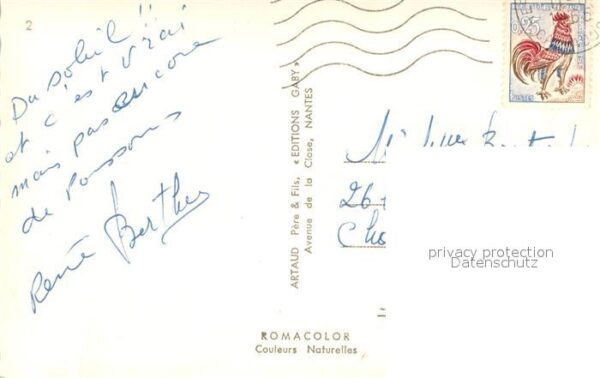 2
Du soleil!!
et c'est vrai
mais pas encore
de Poissons
René Berthe
ARTAUD Père & Fils, « EDITIONS GABY »
Avenue de la Close, NANTES
0,25
POSTES
26
privacy protection
Datenschutz
ROMACOLOR
Couleurs Naturelles